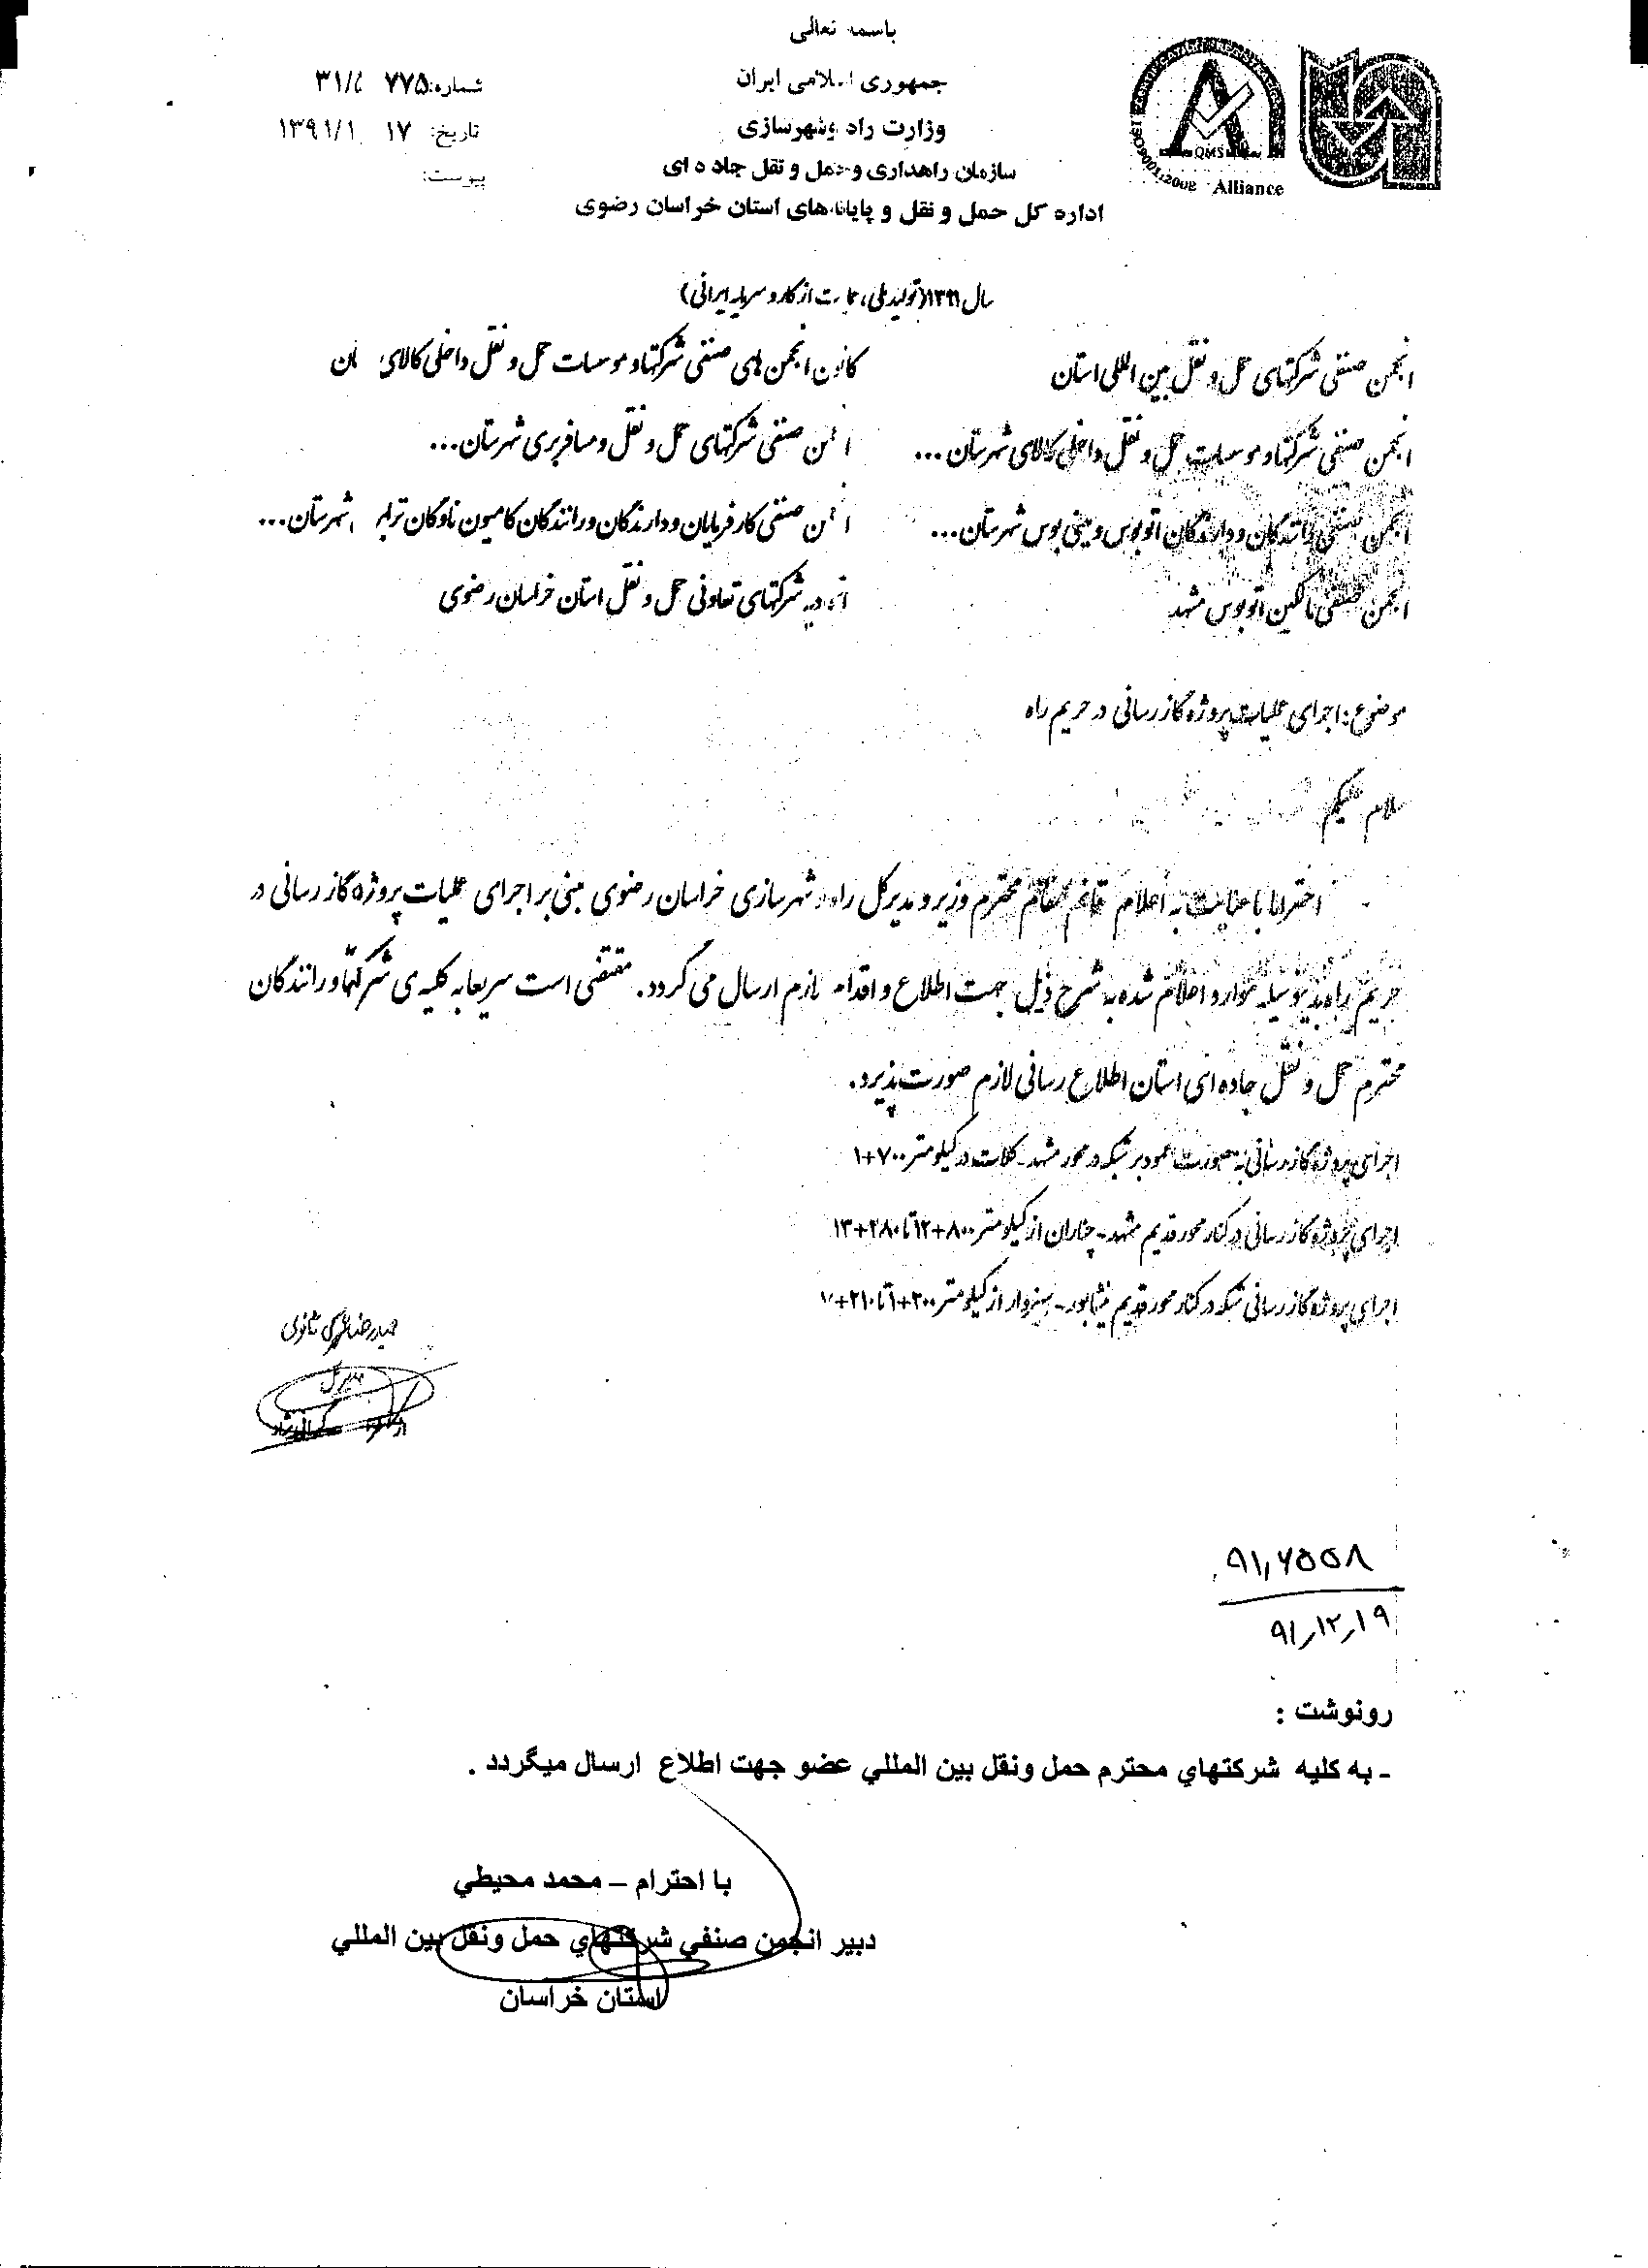 باسمه تعالی
جمهوری اسلامی ایران
وزارت راه وشهرسازی
سازمان راهداری و حمل و نقل جاده ای
اداره کل حمل و نقل و پایانه های استان خراسان رضوی
شماره: ۷۷۵
تاریخ: ۱۷
پیوست:
QMS
ISO9001:2008 Alliance
سال ۱۳۹۱(تولید ملی، حمایت از کار و سرمایه ایرانی)
انجمن صنفی شرکتهای حمل و نقل بین المللی استان
کانون انجمن های صنفی شرکتها و موسسات حمل و نقل داخلی کالای
انجمن صنفی شرکتها و موسسات حمل و نقل داخلی کالای شهرستان ...
انجمن صنفی شرکتهای حمل و نقل و مسافربری شهرستان...
انجمن صنفی رانندگان و دارندگان اتوبوس و مینی بوس شهرستان...
انجمن صنفی کارفرمایان و دارندگان و رانندگان کامیون ناوگان شهرستان...
انجمن صنفی مالکین اتوبوس مشهد
اتحادیه شرکتهای تعاونی حمل و نقل استان خراسان رضوی
موضوع: اجرای عملیات پروژه گاز رسانی در حریم راه
سلام علیکم
احتراما با عنایت به اعلام قائم مقام محترم وزیر و مدیرکل راه و شهرسازی خراسان رضوی مبنی بر اجرای عملیات پروژه گاز رسانی در
حریم راه بدینوسیله موارد اعلام شده به شرح ذیل جهت اطلاع و اقدام لازم ارسال می گردد. مقتضی است سریعا به کلیه ی شرکتها و رانندگان
محترم حمل و نقل جاده ای استان اطلاع رسانی لازم صورت پذیرد.
اجرای پروژه گاز رسانی به صورت عمود بر شبکه در محور مشهد - کلات در کیلومتر ۷۰۰+۱
اجرای پروژه گاز رسانی در کنار محور قدیم مشهد - چناران از کیلومتر ۸۰۰+۱۲ تا ۲۸۰+۱۳
اجرای پروژه گاز رسانی شبکه در کنار محور قدیم نیشابور - سبزوار از کیلومتر ۲۰۰+۱ تا
مدیرکل
۹۱٫۷۵۵۸
۹۱٫۱۲٫۱۹
رونوشت :
- به کلیه شرکتهاي محترم حمل ونقل بین المللي عضو جهت اطلاع ارسال میگردد .
با احترام – محمد محیطي
دبیر انجمن صنفي شرکتهاي حمل ونقل بین المللي
استان خراسان